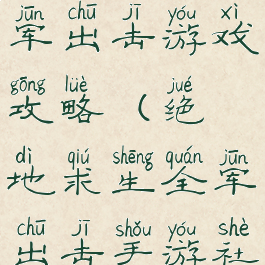 jūn chū jī yóu xì
军出击游戏
gōng lüè jué
攻略（绝
dì qiú shēng quán jūn
地求生全军
chū jī shǒu yóu shè
出击手游社